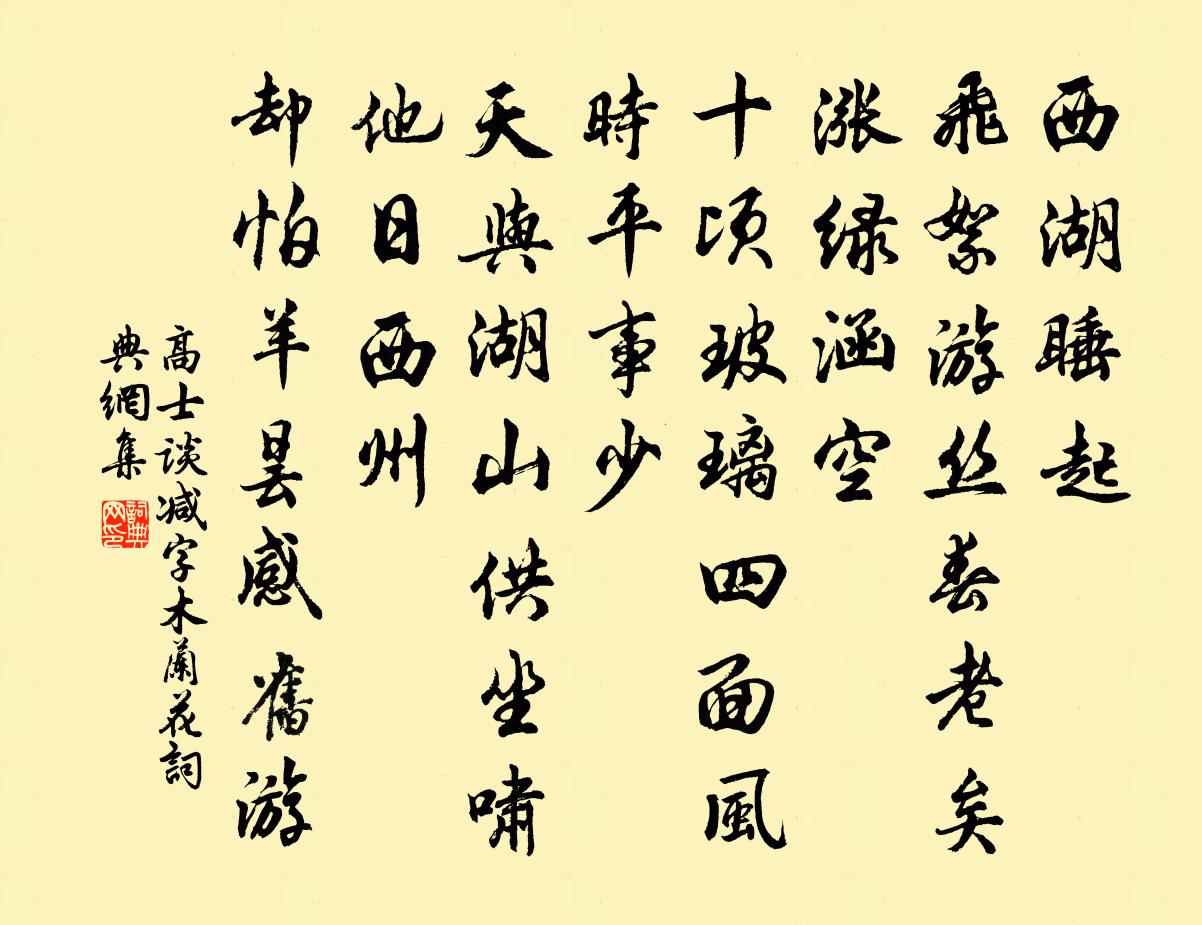 西湖睡起
飛絮游丝春老矣
漲緑涵空
十頃玻璃四面風
時平事少
天與湖山供坐嘯
他日西州
却怕羊昙感舊游
高士谈减字木蘭花詞
典網集
詞典网印